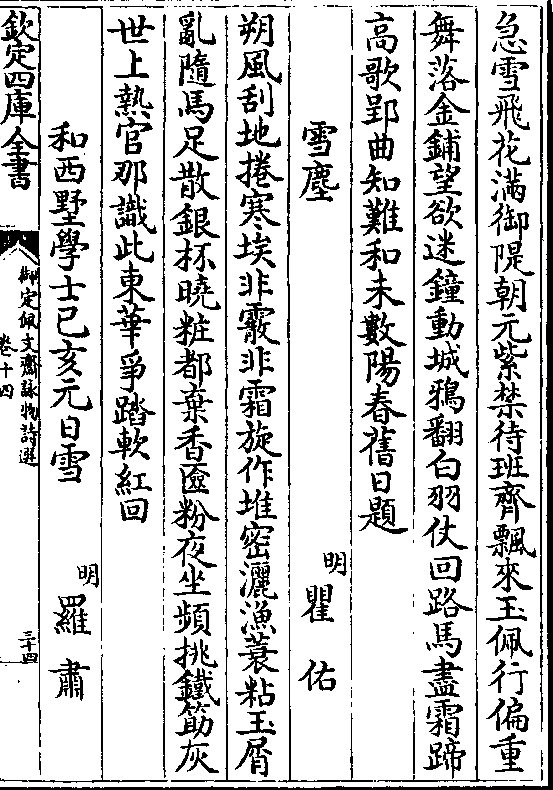 急雪飛花滿御隄朝元紫禁待班齊飄來玉佩行偏重
舞落金鋪望欲迷鐘動城鴉翻白羽仗回路馬盡霜蹄
高歌郢曲知難和未數陽春舊日題
雪塵 明 瞿佑
朔風刮地捲寒埃非霰非霜旋作堆密灑漁蓑粘玉屑
亂隨馬足散銀杯曉粧都棄香匳粉夜坐頻挑鐵筯灰
世上熱官那識此東華爭踏軟紅回
和西墅學士己亥元日雪 明 羅肅
欽定四庫全書
御定佩文齋詠物詩選
卷十四
三十四